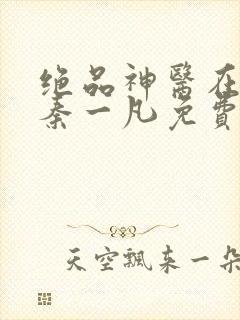 绝品神醫在
秦一凡免費
天空飄来一朵